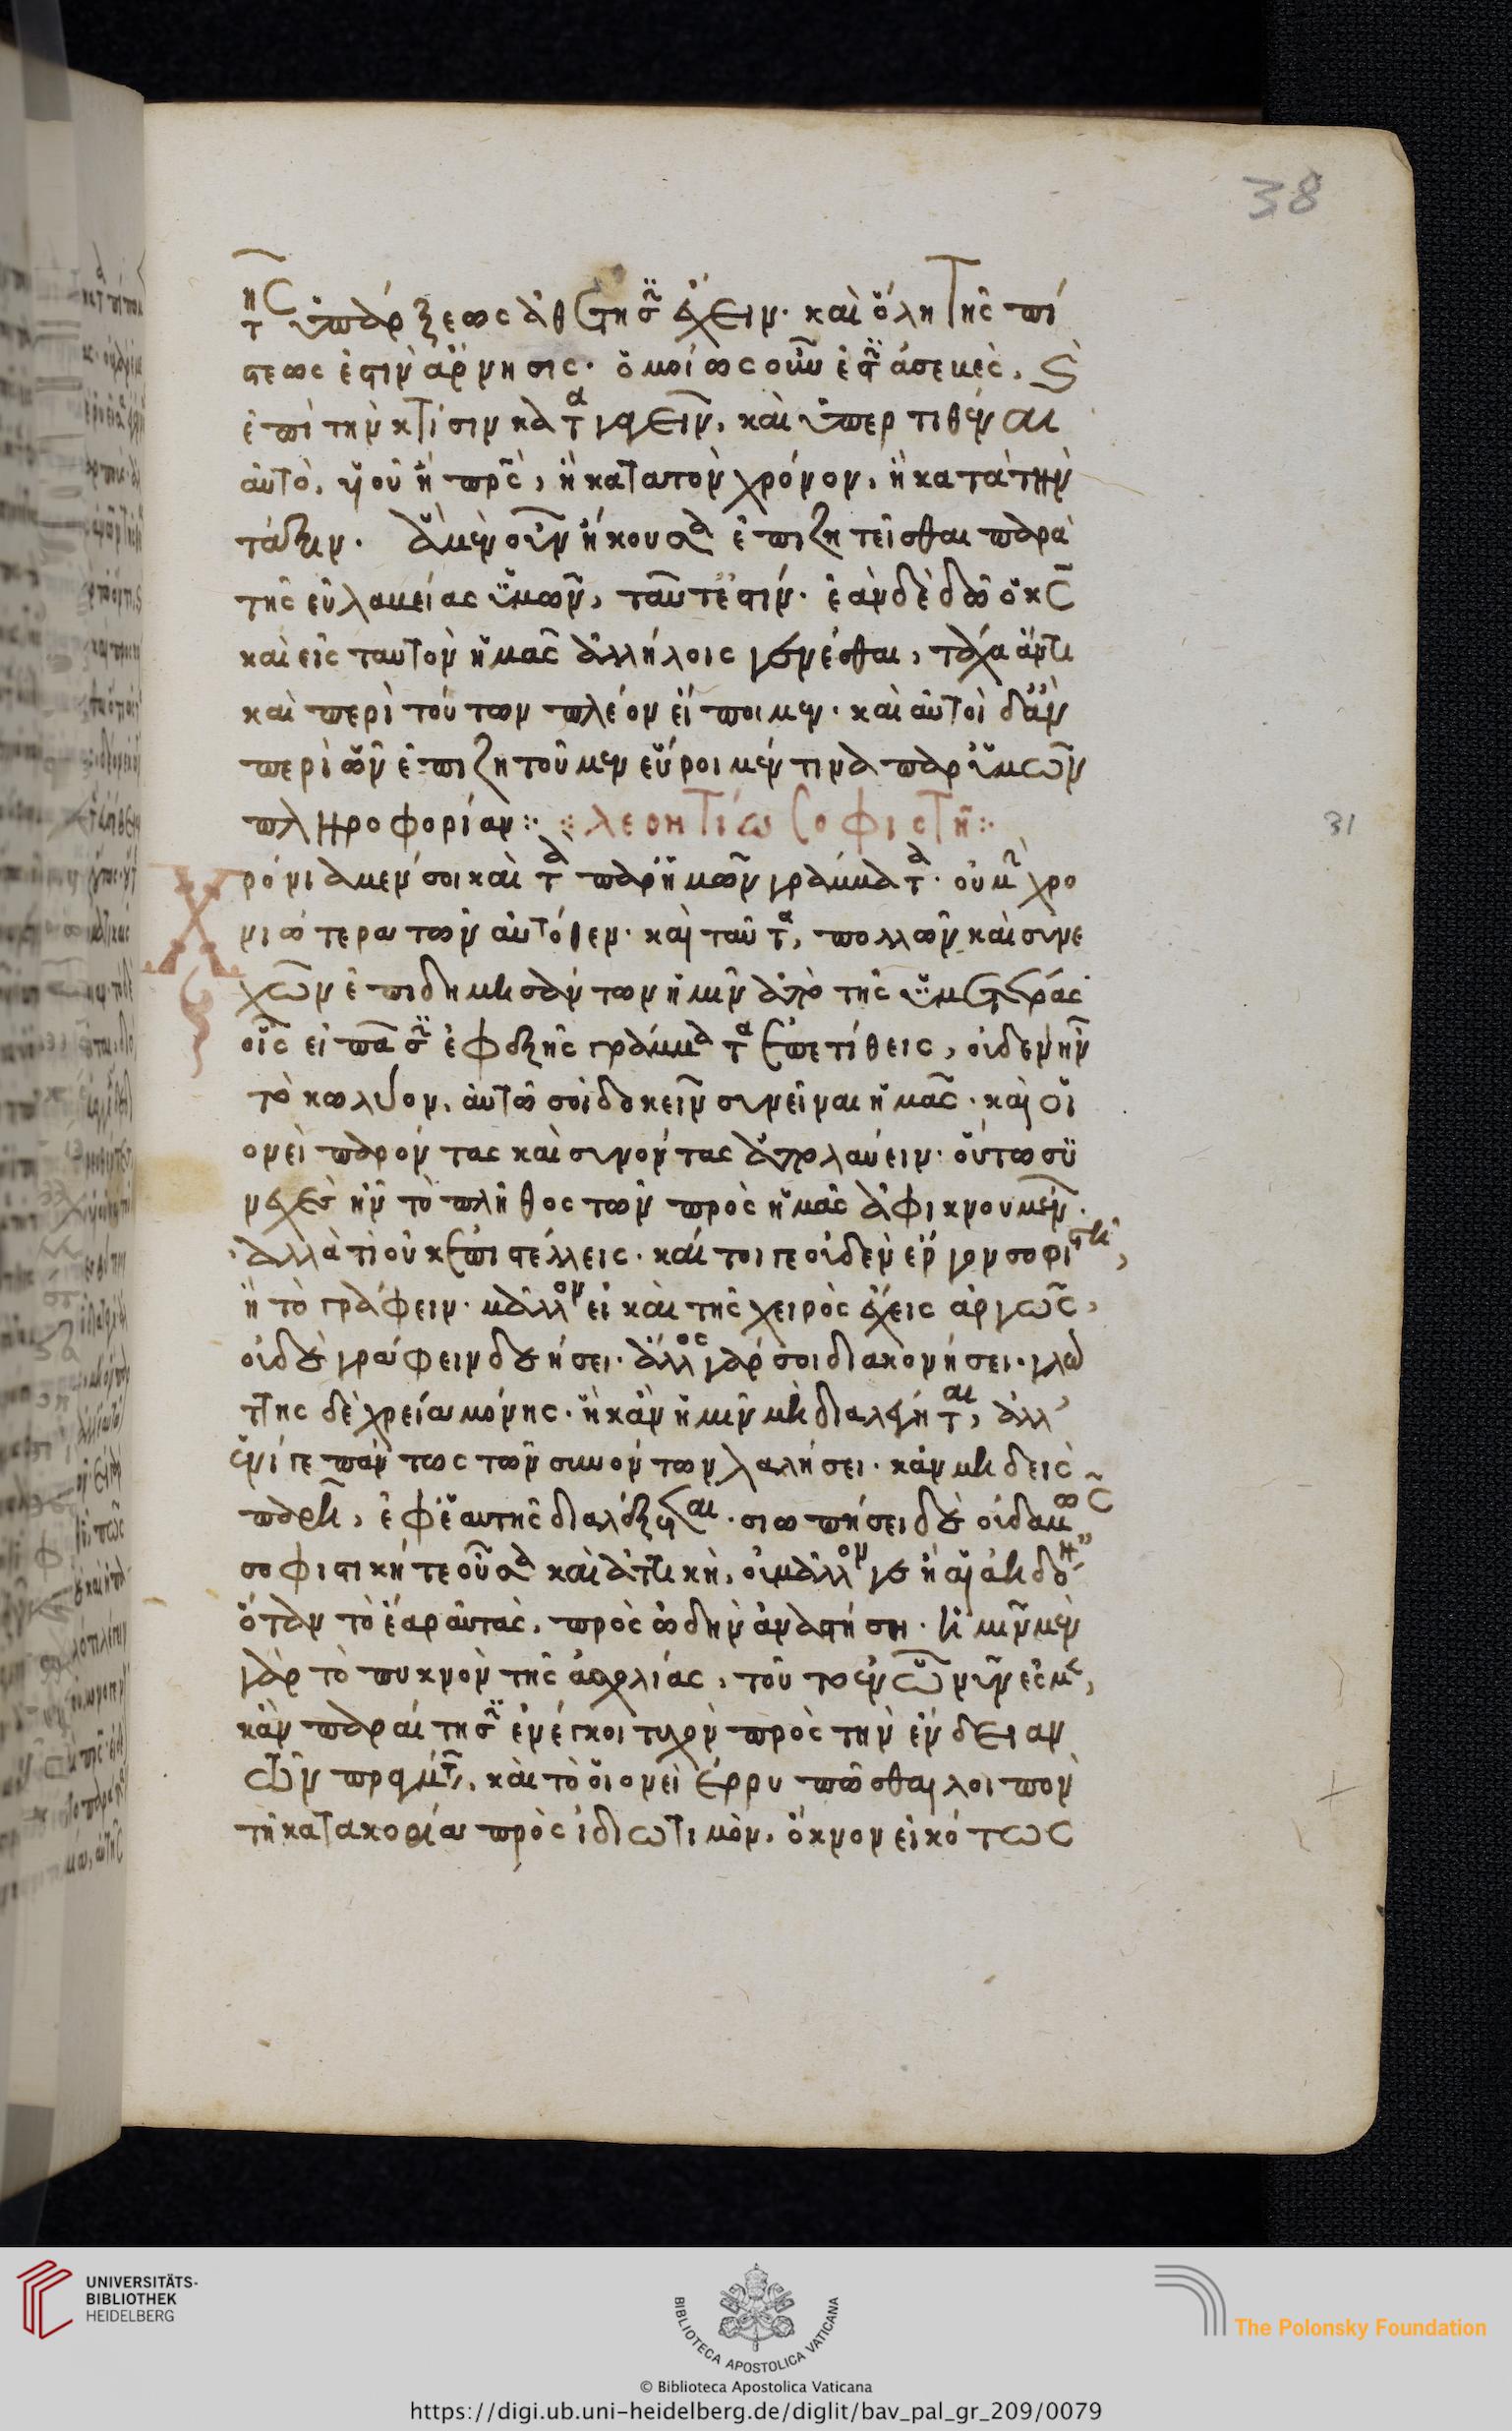 38
της ὑπάρξεως ἀθέτησϊν ἔχειν· καὶ ὅλη τῆς πί
στεως ἐστὶν ἄρνησις· ὁμοίως οὖν ἐστϊν ἀσεβὲς, καὶ
ἐπὶ τὴν κτίσιν καταγαγεῖν, καὶ ὑπερτιθέναι
αὐτὸ, υἱοῦ ἢ πρς, ἢ κατα τὸν χρόνον, ἢ κατὰ τὴν
τάξιν· ἃ μὲν οὖν ἤκουσα ἐπιζητεῖσθαι παρὰ
τῆς εὐλαβείας ὑμῶν, ταῦτά ἐστίν· ἐὰν δὲ δῶ ὁ κς
καὶ εἰς ταυτὸν ἡμᾶς ἀλλήλοις γενέσθαι, τάχα ἄν τι
καὶ περὶ τούτων πλέον εἴποιμεν· καὶ αὐτοὶ δ' ἂν
περὶ ὧν ἐπιζητοῦμεν εὕροιμέν τινα παρ' ὑμῶν
πληροφορίαν: λεοντίω σοφιστῆ:
31
Χρόνια μέν σοι καὶ τὰ παρ' ἡμῶν γράμματα· οὐ μὴν χρο
νιώτερα τῶν αὐτόθεν· καὶ ταῦτα, πολλῶν καὶ συνε
χῶν ἐπιδημησάντων ἡμῖν ἀπὸ τῆς ὑμετέρας
οἷς εἰ πᾶσϊν ἐφεξῆς γράμματα ἐπετίθεις, οὐδὲν ἦν
τὸ κωλύον, αὐτῶ σοὶ δοκεῖν συνεῖναι ἡμᾶς· καὶ οἱ
ονεὶ παρόντας καὶ συνόντας ἀπολαύειν· οὕτω συ
νεχὲς ἦν τὸ πλῆθος τῶν πρὸς ἡμᾶς ἀφικνουμένων·
ἀλλὰ τί οὐκ ἐπιστέλλεις· καί τοιγε οὐδὲν ἔργον σοφιστῆ,
ἢ τὸ γράφειν· μᾶλλον εἰ καὶ τῆς χειρὸς ἔχεις ἀργῶς,
οὐδὲ γράφειν δεήσει· ἄλλος γάρ σοι διακονήσει· γλώ
ττης δὲ χρεία μόνης· ἣ κἂν ἡμῖν μὴ διαλέγηται, ἀλλ'
ἑνί γε πάντως τῶν συνόντων λαλήσει· κἂν μηδεὶς
παρῆ, ἐφ' ἑαυτῆς διαλέξεται· σιωπήσει δὲ οὐδαμῶς
σοφιστική τε οὖσα καὶ ἀττικὴ, οὐ μᾶλλόν γε ἢ αἱ ἀηδόνες
ὅταν τὸ ἔαρ αὐτὰς, πρὸς ὠδὴν ἀναστήση· ἡμῖν μὲν
γὰρ τὸ πυκνὸν τῆς ἀσχολίας, τοῦτο ἐν ὧ νῦν ἐσμὲν,
κἂν παραίτησϊν ἐνέγκοι τυχὸν πρὸς τὴν ἔνδειαν
τῶν γραμμάτων, καὶ τὸ οἱονεὶ ἐρρυπῶσθαι λοιπὸν
τῆ κατακορία πρὸς ἰδιωτισμὸν, ὄκνον εἰκότως
UNIVERSITÄTS-
BIBLIOTHEK
HEIDELBERG
BIBLIOTECA APOSTOLICA VATICANA
The Polonsky Foundation
© Biblioteca Apostolica Vaticana
https://digi.ub.uni-heidelberg.de/diglit/bav_pal_gr_209/0079